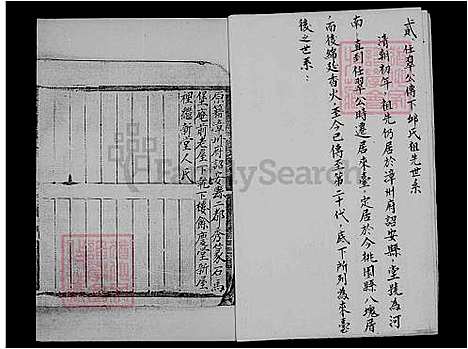 貳 任翠公傳下邱氏祖先世系
清朝初年,祖先仍居於漳州府詔安縣,堂號為河
南,直到任翠公時遷居來臺,定居於今桃園縣八塊厝
而後綿延香火至今已傳至第二十代,底下所列為來臺
後之世系:
原籍漳州府詔安縣二都秀篆石馬
堡庵前老屋下乾下樓餘慶堂新屋
裡繼新堂人氏
FamilySearch